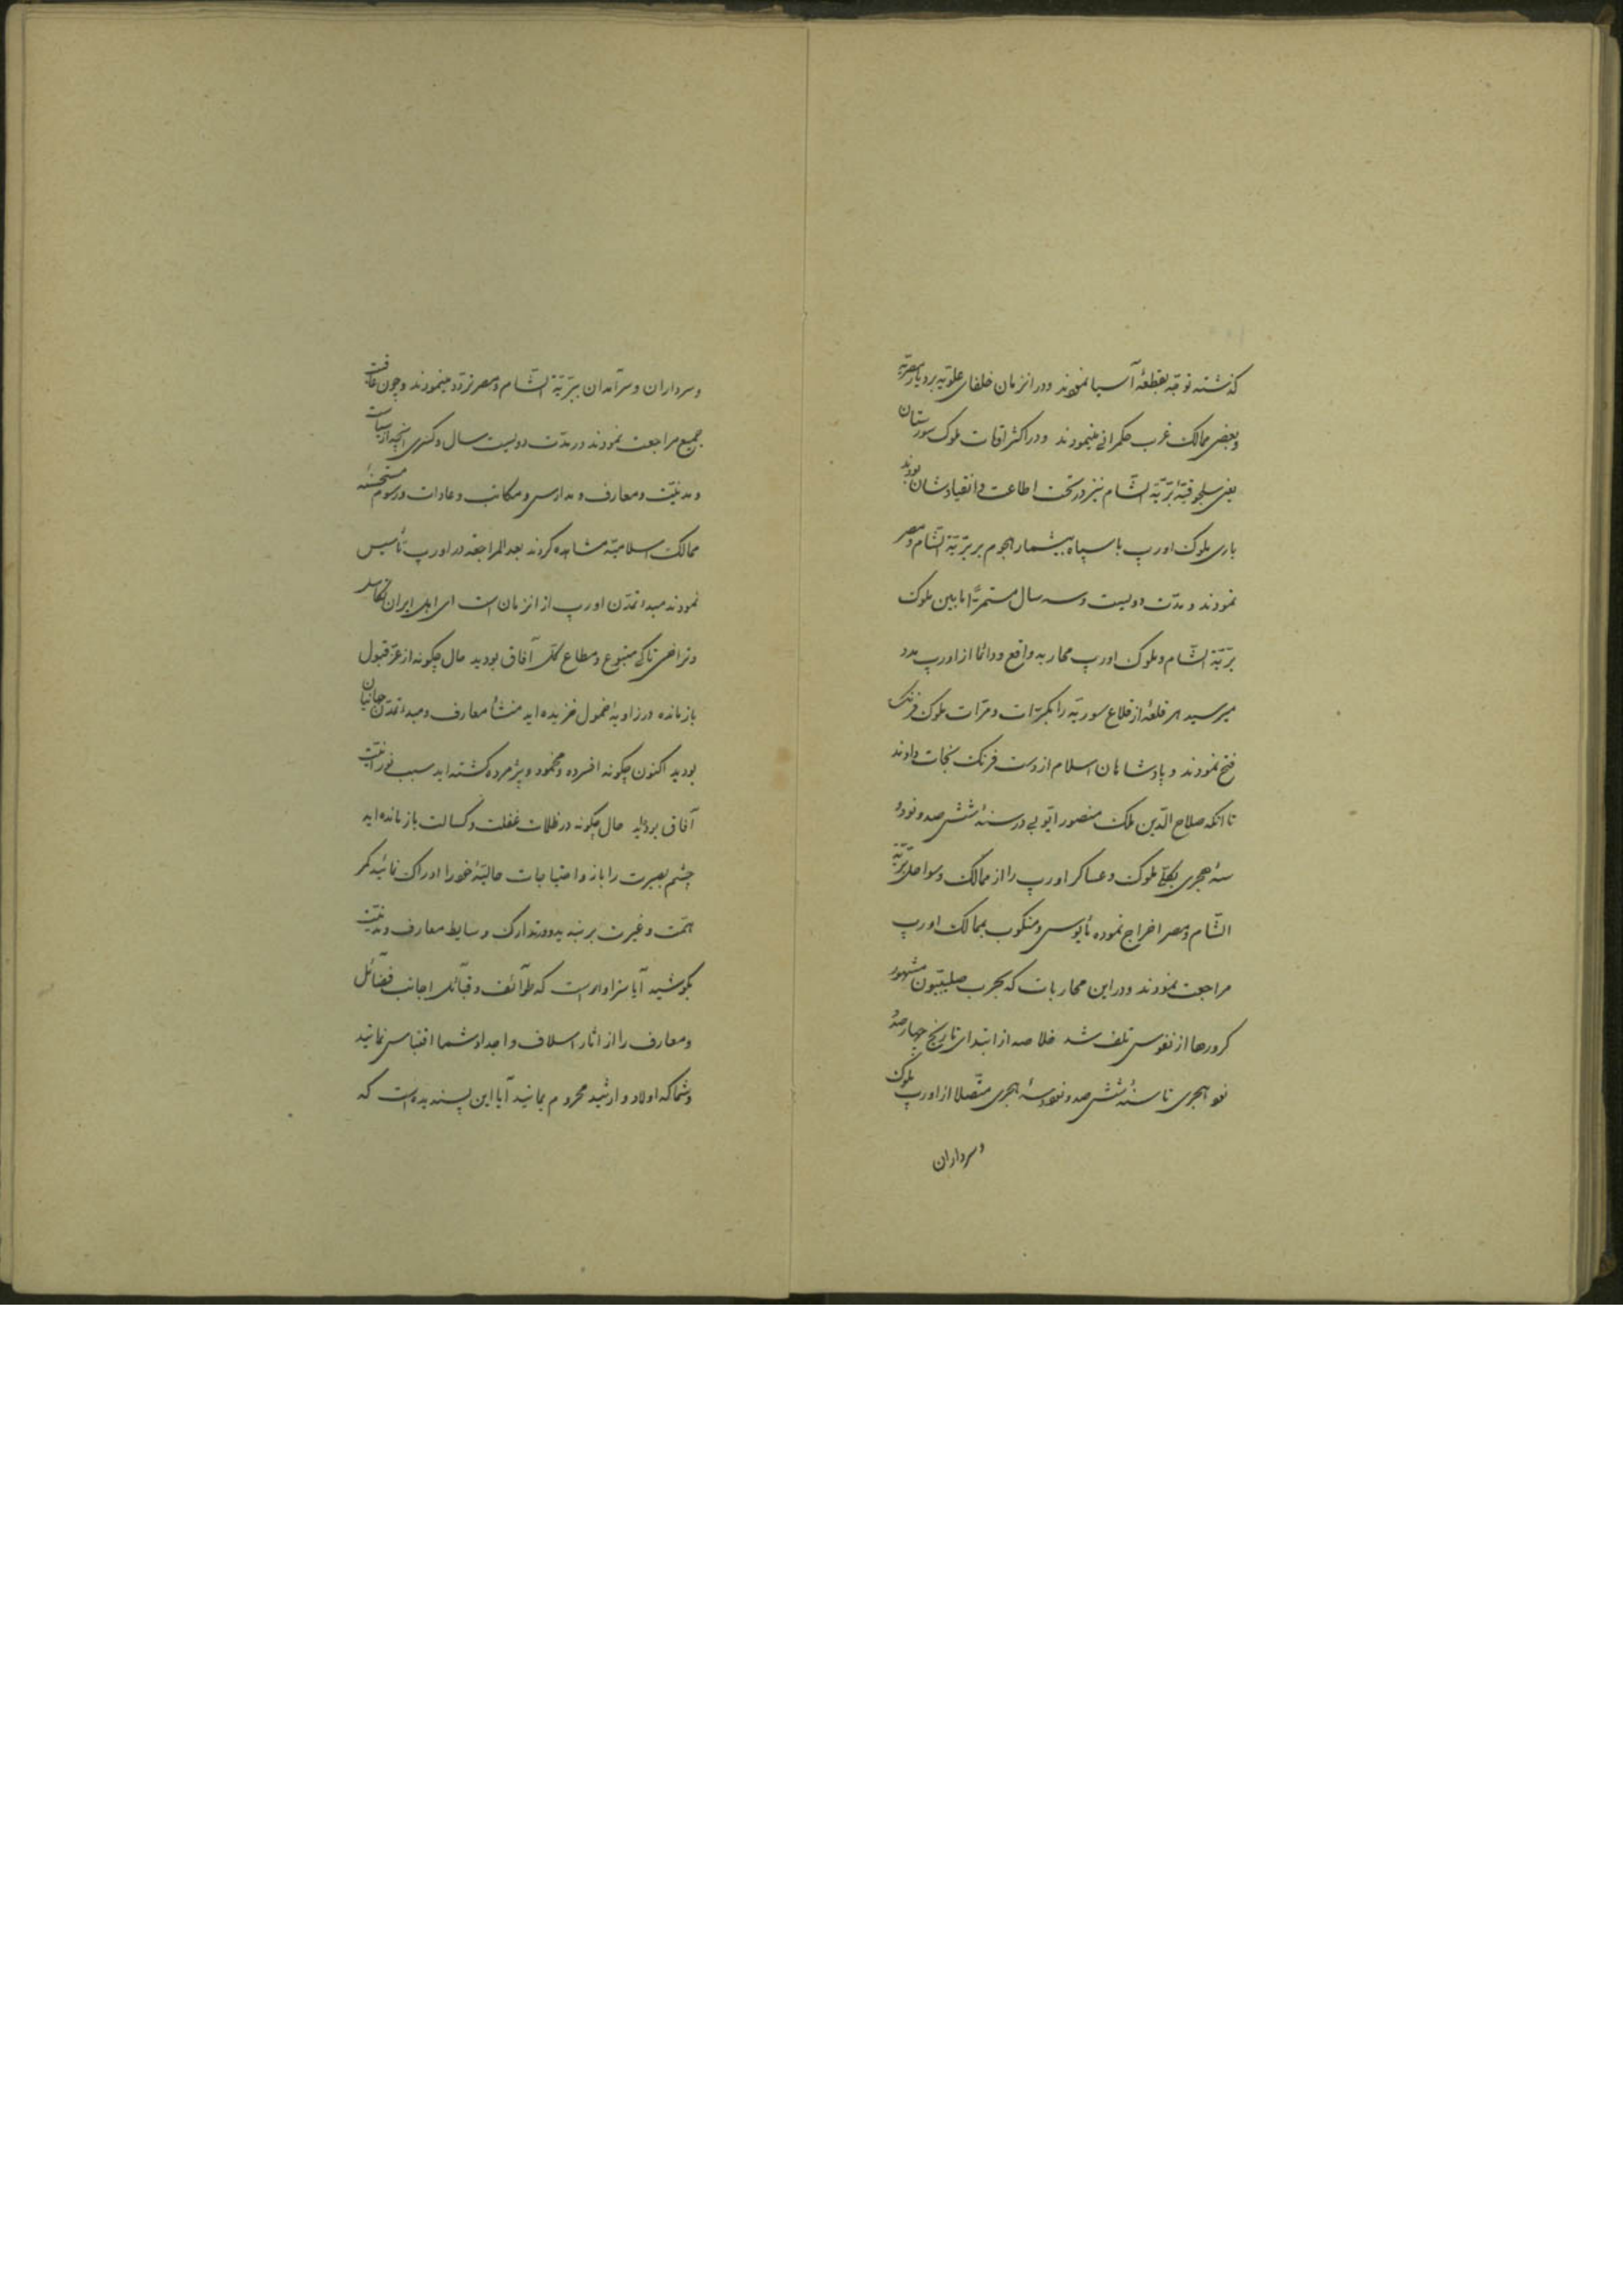 گذشته توجّه بقطعهٔ آسیا نمودند و در انزمان خلفای علویه بر دیار مصریّه
و بعضی ممالک غرب حکمرانی مینمودند و در اکثر اوقات ملوک سورستان
یعنی سلجوقیّهٔ برّیّة الشّام نیز در تحت اطاعت و انقیادشان بودند
باری ملوک اورپ با سپاه بیشمار هجوم بر برّیّة الشّام و مصر
نمودند و مدّت دویست و سه سال مستمرّاً مابین ملوک
برّیّة الشّام و ملوک اورپ محاربه واقع و دائما از اورپ مدد
میرسید هر قلعهٔ از قلاع سوریّه را بکرّات و مرّات ملوک فرنک
فتح نمودند و پادشاهان اسلام از دست فرنک نجات دادند
تا آنکه صلاح الدّین ملک منصور ایّوبی در سنهٔ ششصد و نود و
سهٔ هجری بکلّی ملوک و عساکر اورپ را از ممالک و سواحل برّیّة
الشّام و مصر اخراج نموده مأیوس و منکوب بممالک اورپ
مراجعت نمودند و در این محاربات که بحرب صلیبیّون مشهور
کرورها از نفوس تلف شد خلاصه از ابتدای تاریخ چهارصد و
نود هجری تا سنهٔ ششصد و نود و سهٔ هجری متّصلا از اورپ ملوک
و سرداران
و سرداران و سرآمدان ببرّیّة الشّام و مصر تردّد مینمودند و چون عاقبت
جمیع مراجعت نمودند در مدّت دویست سال و کسری آنچه از سیاسات
و مدنیّت و معارف و مدارس و مکاتب و عادات و رسوم مستحسنه
ممالک اسلامیّه مشاهده کردند بعد المراجعه در اورپ تأسیس
نمودند مبدا تمدّن اورپ از انزمان است ای اهل ایران تکاسل
و تراخی تا کی متبوع و مطاع کلّ آفاق بودید حال چگونه از عزّ قبول
بازمانده در زاویهٔ خمول خزیده اید منشأ معارف و مبدا تمدّن جهانیان
بودید اکنون چگونه افسرده و مخمود و پژمرده گشته اید سبب نورانیّت
آفاق بوده اید حال چگونه در ظلمات غفلت و کسالت بازمانده اید
چشم بصیرت را باز و احتیاجات حالیّهٔ خود را ادراک نمائید کمر
همّت و غیرت بربندید و در تدارک وسایط معارف و مدنیّت
بکوشید آیا سزاوار است که طوآئف و قبآئل اجانب فضآئل
و معارف را از اثار اسلاف و اجداد شما اقتباس نمایند
و شما که اولاد و ارثید محروم بمانید آیا این پسندیده است که